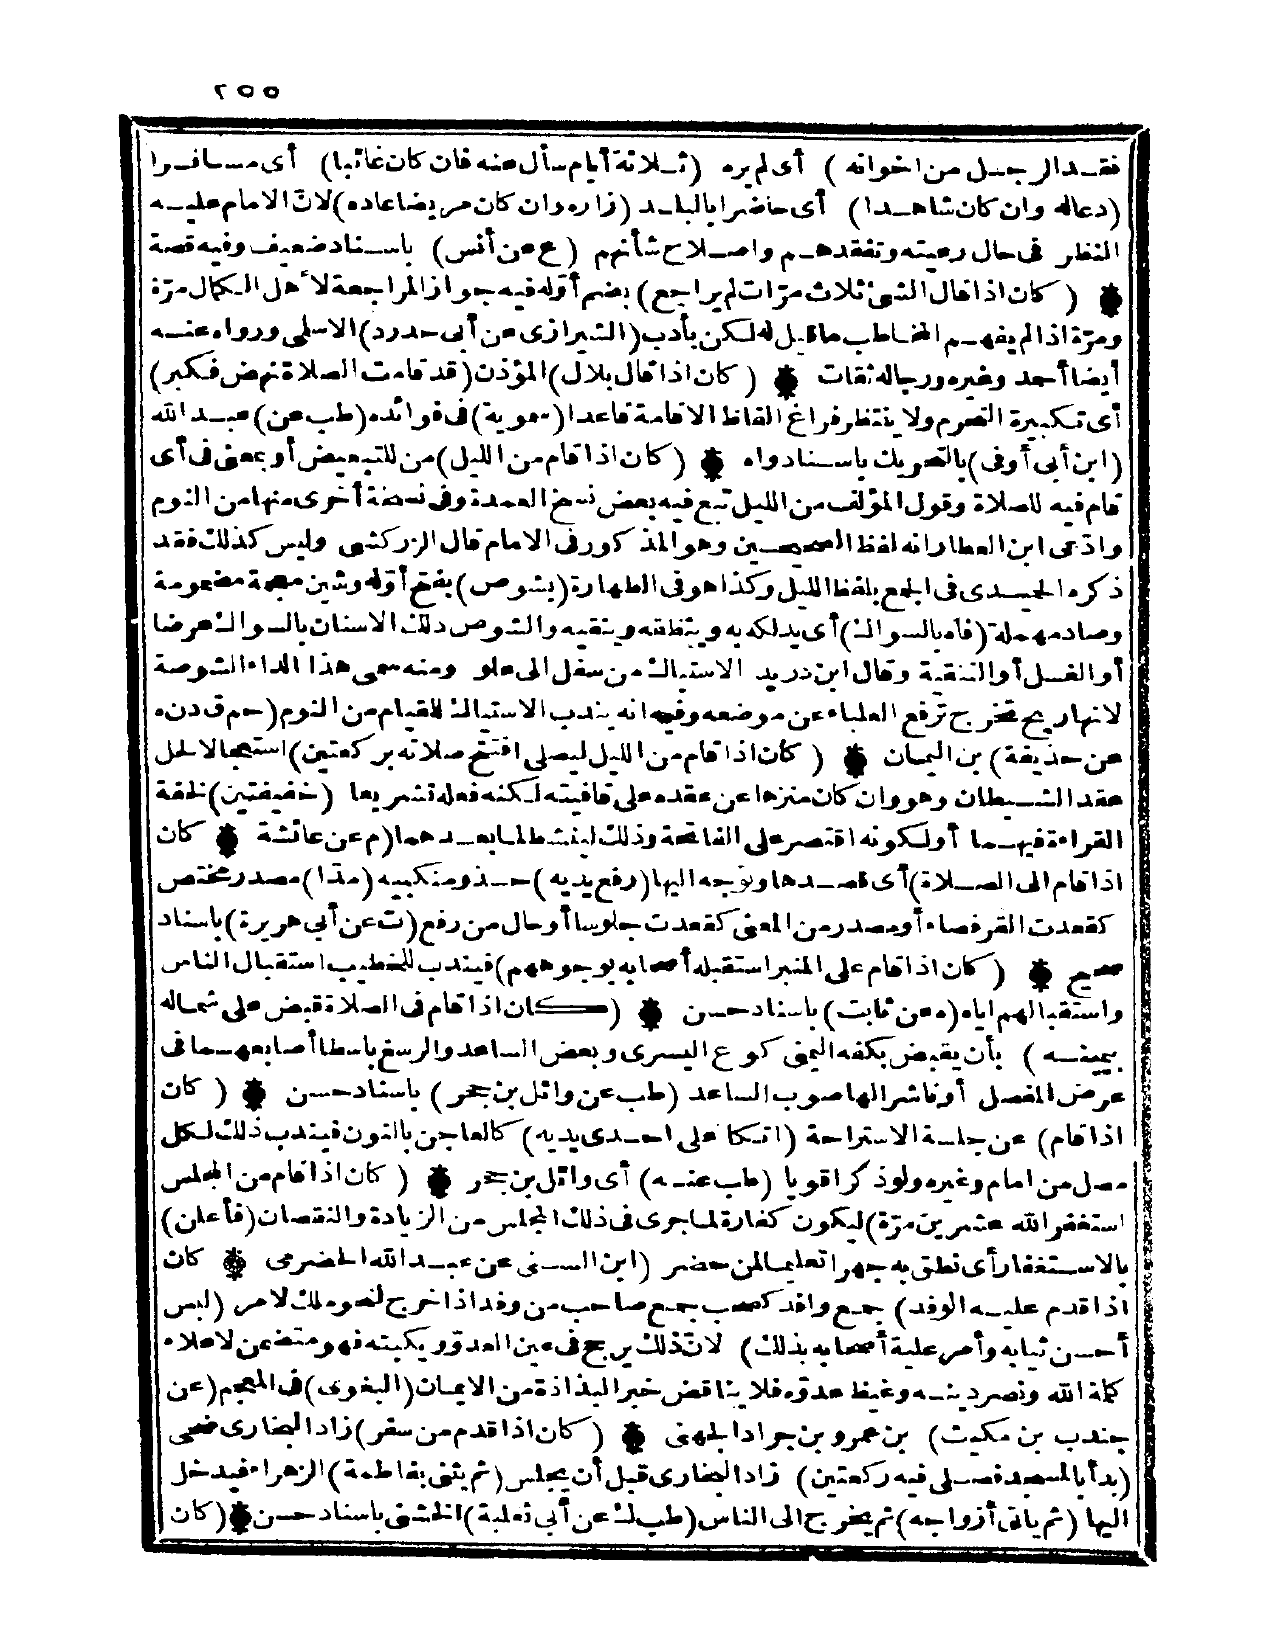 ٢٥٥
فقد الرجل من اخوانه ) أى لم يره (ثلاثة أيام سأل عنه فان كان غائبا) أى مسافرا
(دعاله وان كان شاهدا) أى حاضرا بالبلد (زاره وان كان مريضا عاده) لان الامام عليه
النظر فى حال رعيته وتفقدهم واصلاح شأنهم (ع عن أنس) باسناد ضعيف وفيه قصة
(كان اذا قال الشئ ثلاث مرات لم يراجع) بضم أوله فيه جواز المراجعة لأهل الكمال مرة
ومرة اذا لم يفهم المخاطب ما قيل له لكن بأدب (الشيرازى عن أبى حدرد) الاسلمى ورواه عنه
أيضا أحمد وغيره ورجاله ثقات (كان اذا قال بلال) المؤذن (قد قامت الصلاة نهض فكبر)
أى تكبيرة التحرم ولا ينتظر فراغ ألفاظ الاقامة قاعدا (سمويه) فى فوائده (طب عن) عبد الله
(ابن أبى أوفى) بالتحريك باسناد واه (كان اذا قام من الليل) من للتبعيض أو بمعنى فى أى
قام فيه للصلاة وقول المؤلف من الليل تبع فيه بعض نسخ العمدة وفى نسخة أخرى منها من النوم
وادعى ابن العطار انه لفظ الصحيحين وهو المذكور فى الامام قال الزركشى وليس كذلك فقد
ذكره الحميدى فى الجمع بلفظ الليل وكذا هو فى الطهارة (يشوص) بفتح أوله وشين معجمة مضمومة
وصاد مهملة (فاه بالسواك) أى يدلكه به وينظفه وينقيه والشوص دلك الاسنان بالسواك عرضا
أو الغسل أو التنقية وقال ابن دريد الاستياك من سفل الى علو ومنه سمى هذا الداء الشوصة
لانها ريح تخرج ترفع العلباء عن موضعه وفيه انه يندب الاستياك للقيام من النوم (حم ق د ن ه
عن حذيفة) بن اليمان (كان اذا قام من الليل ليصلى افتتح صلاته بركعتين) استعجالا لحل
عقد الشيطان وهو وان كان منزها عن عقده على قافيته لكنه فعله تشريعا (خفيفتين) لخفة
القراءة فيهما أو لكونه اقتصر على الفاتحة وذلك لينشط لما بعدهما (م عن عائشة (كان
اذا قام الى الصلاة) أى قصدها وتوجه اليها (رفع يديه) حذو منكبيه (مدا) مصدر مختص
كقعدت القرفصاء أو مصدر من المعنى كقعدت جلوسا أو حال من رفع (ت عن أبى هريرة) باسناد
صحيح (كان اذا قام على المنبر استقبله أصحابه بوجوههم) فيندب للخطيب استقبال الناس
واستقبالهم اياه (ه عن ثابت) باسناد حسن (كان اذا قام فى الصلاة قبض على شماله
بيمينه) بأن يقبض بكفه اليمنى كوع اليسرى وبعض الساعد والرسغ باسطا أصابعها فى
عرض المفصل أو ناشرا لها صوب الساعد (طب عن وائل بن حجر) باسناد حسن (كان
اذا قام) عن جلسة الاستراحة (اتكأ على احدى يديه) كالعاجن بالنون فيندب ذلك لكل
مصل من امام وغيره ولو ذكرا قويا (طب عنه) أى وائل بن حجر (كان اذا قام من المجلس
استغفر الله عشرين مرة) ليكون كفارة لما جرى فى ذلك المجلس من الزيادة والنقصان (فأعلن)
بالاستغفار أى نطق به جهرا تعليما لمن حضر (ابن السنى عن عبد الله الحضرمى (كان
اذا قدم عليه الوفد) جمع وافد كصحب جمع صاحب من وفد اذا خرج لنحو ملك لامر (لبس
أحسن ثيابه وأمر علية أصحابه بذلك) لان ذلك يرجح فى عين العدو ويكبته فهو متضمن لاعلاء
كلمة الله ونصر دينه وغيظ عدوه فلا يناقض خبر البذاذة من الايمان (البغوى) فى المعجم (عن
جندب بن مكيث) بن عمرو بن جراد الجهنى (كان اذا قدم من سفر) زاد البخارى ضحى
(بدأ بالمسجد فصلى فيه ركعتين) زاد البخارى قبل أن يجلس (ثم يثنى بفاطمة) الزهراء فيدخل
اليها (ثم يأتى أزواجه) ثم يخرج الى الناس (طب ك عن أبى ثعلبة) الخشنى باسناد حسن (كان